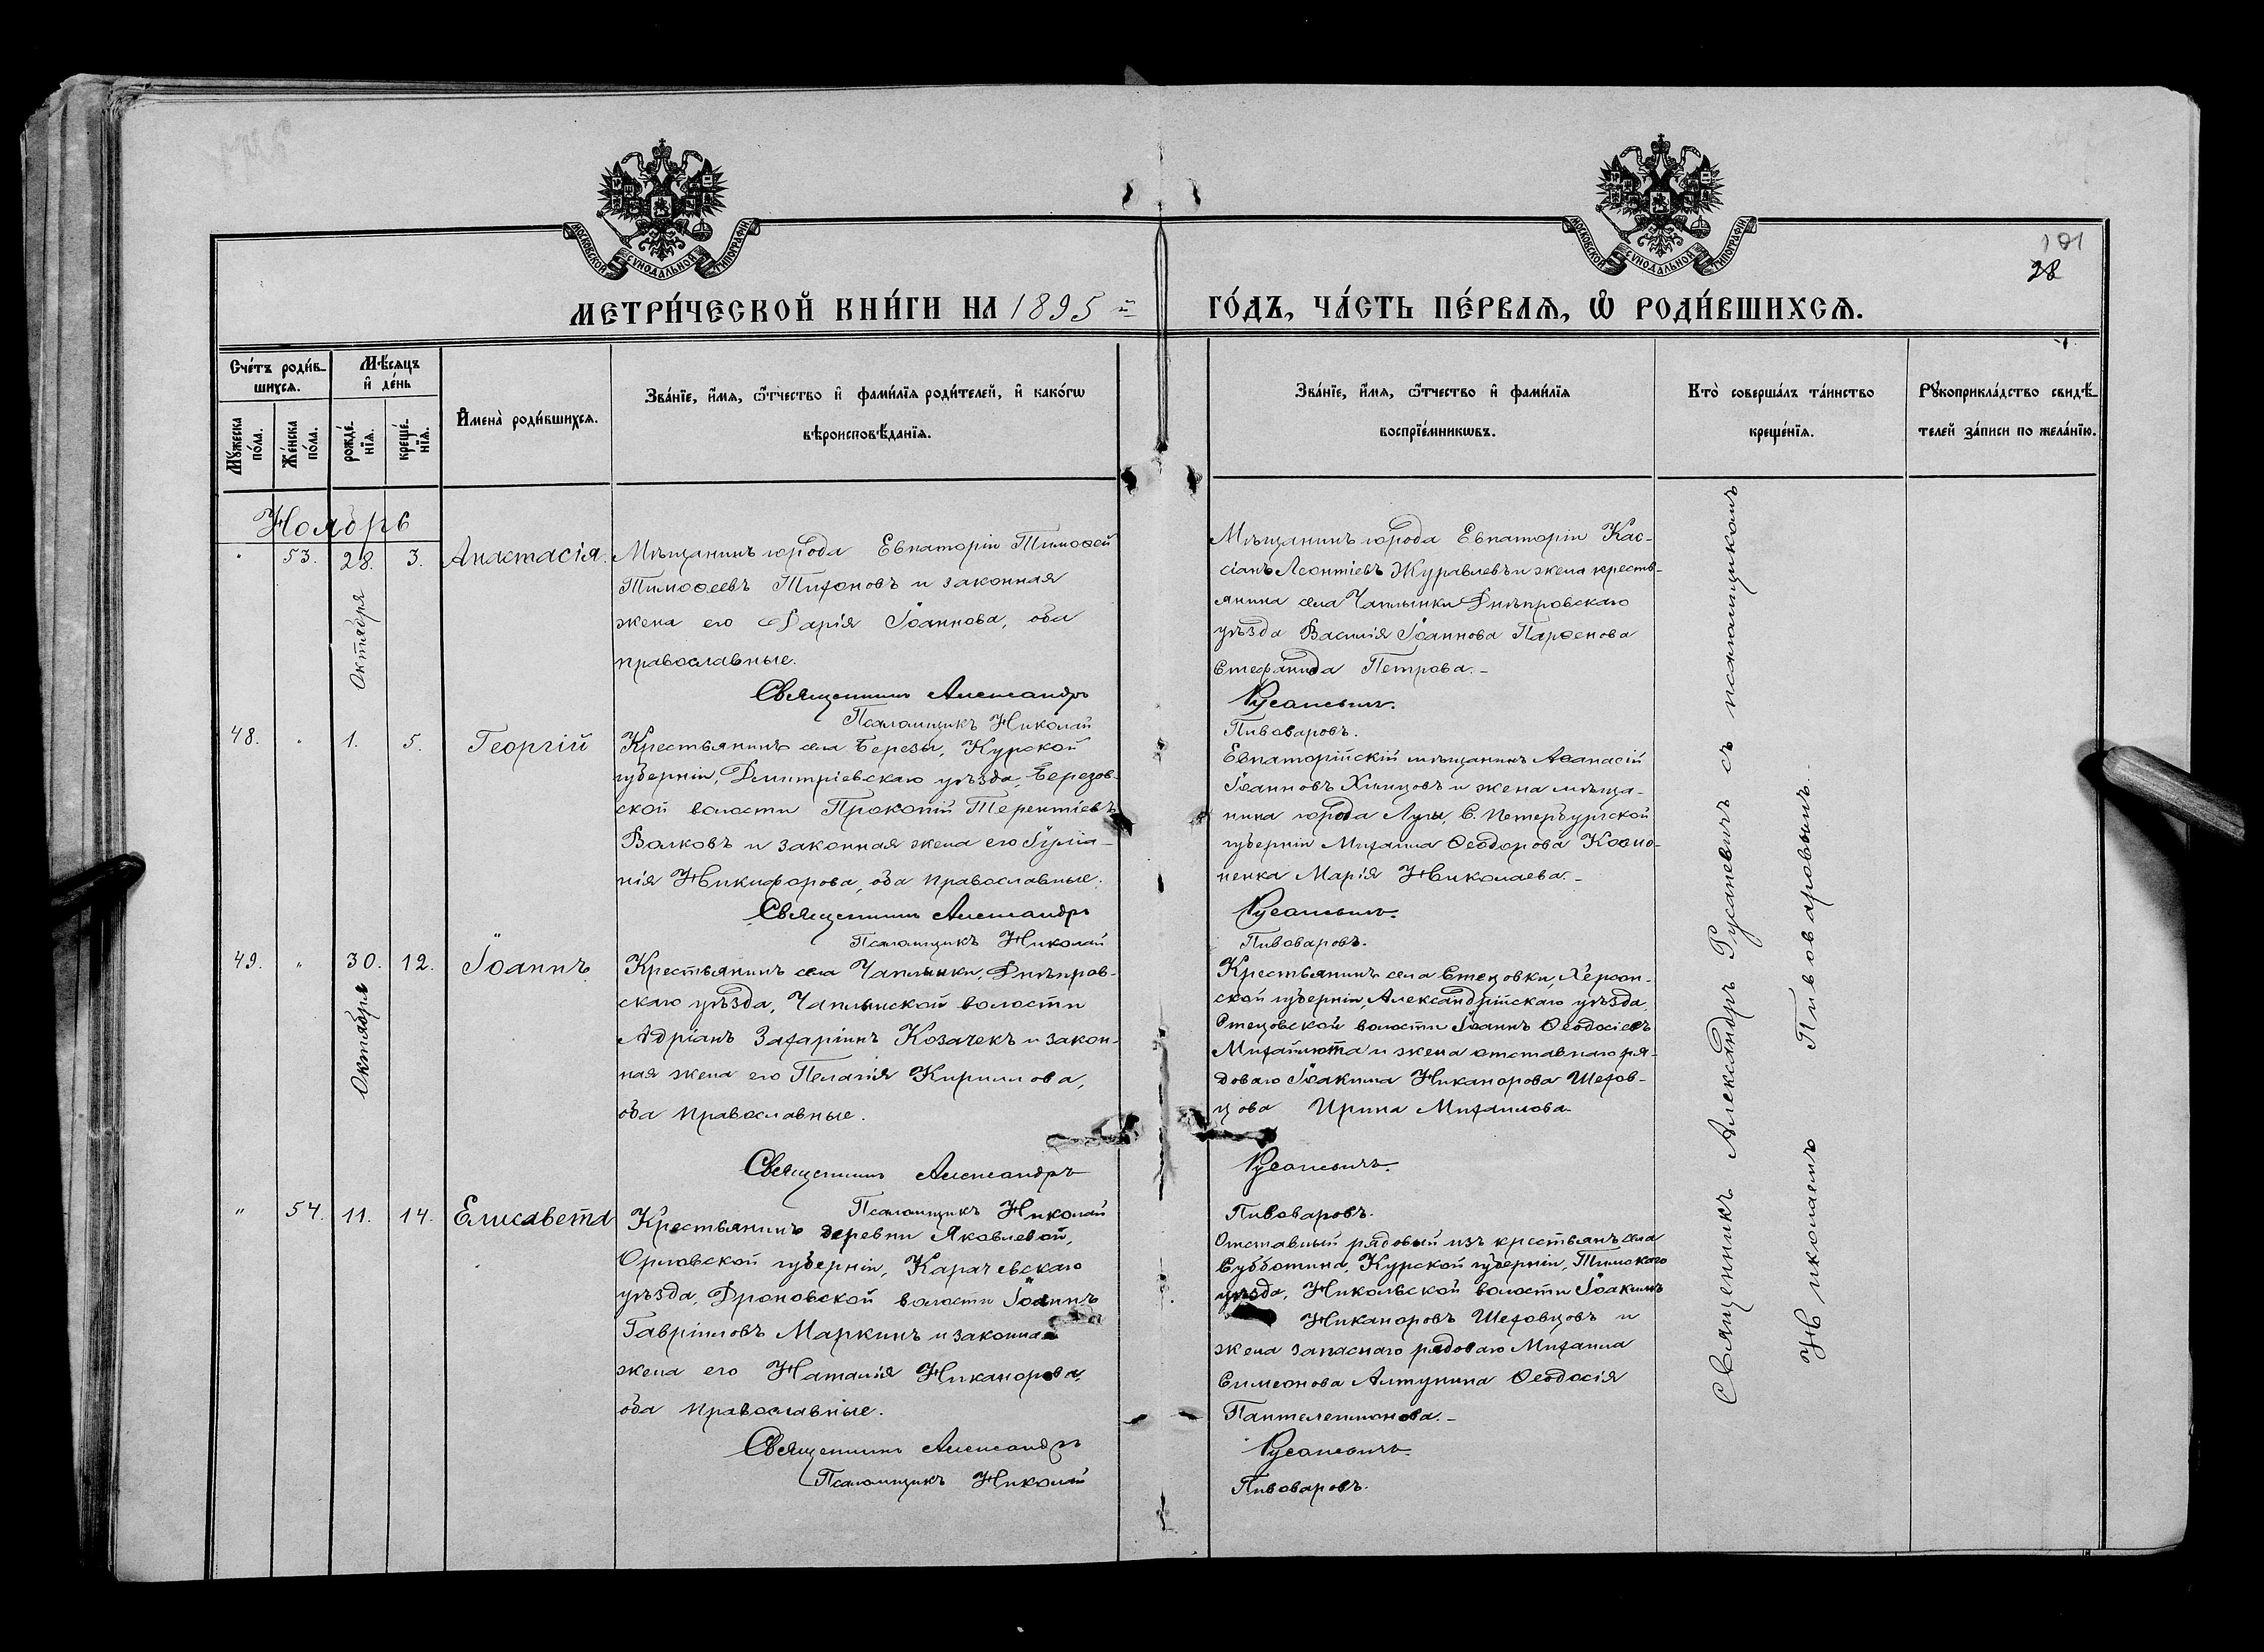 МОСКОВСКОЙ СѴНОДАЛЬНОЙ ТИПОГРАФІИ
МОСКОВСКОЙ СѴНОДАЛЬНОЙ ТИПОГРАФІИ
101
28
МЕТРИ́ЧЕСКОЙ КНИ́ГИ НА 1895 й
ГО́ДЪ, ЧА́СТЬ ПЕ́РВАѦ, Ѡ҆ РОДИ́ВШИХСѦ.
Сче́тъ роди́в-
шихсѧ.
Мѣ́сѧцъ
и҆ де́нь
Мꙋ́жеска
по́ла.
Же́нска
по́ла.
рожде́-
нїѧ.
креще́-
нїѧ.
И҆мена̀ роди́вшихсѧ.
Зва́нїе, и҆́мѧ, ѻ҆́тчество и҆ фами́лїѧ роди́телей, и҆ како́гѡ
вѣроисповѣ́данїѧ.
Зва́нїе, и҆́мѧ, ѻ҆́тчество и҆ фами́лїѧ
воспрїе́мникѡвъ.
Кто̀ соверша́лъ та́инство
креще́нїѧ.
Рꙋкоприкла́дство свидѣ́-
телей за́писи по жела́нїю.
Ноябрь
" 53. 28. 3. Анастасія.
Октября
Мѣщанинъ города Евпаторіи Тимоѳей
Тимоѳеевъ Тихоновъ и законная
жена его Дарія Іоаннова, оба
православные.
Священникъ Александръ
Псаломщикъ Николай
Мѣщанинъ города Евпаторіи Кас-
сіанъ Леонтіевъ Журавлевъ и жена кресть-
янина села Чаплынки Днѣпровскаго
уѣзда Василія Іоаннова Парѳенова
Стефанида Петрова.-
Русаневичъ.
Пивоваровъ.
48. " 1. 5. Георгій
Крестьянинъ села Березы, Курской
губерніи, Дмитріевскаго уѣзда, Березов-
ской волости Прокопій Терентіевъ
Волковъ и законная жена его Іуліа-
нія Никифорова, оба православные.
Священникъ Александръ
Псаломщикъ Николай
Евпаторійскій мѣщанинъ Аѳанасій
Іоанновъ Химцовъ и жена мѣща-
нина города Луги, С. Петербургской
губерніи Михаила Ѳеодорова
Марія Николаева.-
Русаневичъ.
Пивоваровъ.
49. " 30. 12. Іоаннъ
Октября
Крестьянинъ села Чаплынки, Днѣпров-
скаго уѣзда, Чаплынской волости
Адріанъ Захаріинъ Козачекъ и закон-
ная жена его Пелагія Кириллова,
оба православные.
Священникъ Александръ
Псаломщикъ Николай
Крестьянинъ села Стецовки, Херсон-
ской губерніи, Александрійскаго уѣзда,
Стецовской волости Іоаннъ Ѳеодосіевъ
Михайлюта и жена отставнаго ря-
доваго Іоакима Никанорова Шехов-
цова Ирина Михаилова.
Русаневичъ.
Пивоваровъ.
" 54. 11. 14. Елисавета
Крестьянинъ деревни Яковлевой,
Орловской губерніи, Карачевскаго
уѣзда, Дроновской волости Іоаннъ
Гавріиловъ Маркинъ и законная
жена его Наталія Никанорова,
оба православные.
Священникъ Александръ
Псаломщикъ Николай
Отставный рядовый изъ крестьянъ села
Субботина, Курской губерніи, Тимскаго
уѣзда, Никольской волости Іоакимъ
Никаноровъ Шеховцовъ и
жена запаснаго рядоваго Михаила
Симеонова Алтунина Ѳеодосія
Пантелеимонова.-
Русаневичъ.
Пивоваровъ.
Священникъ Александръ Русаневичъ съ псаломщикомъ
Николаемъ Пивоваровымъ.